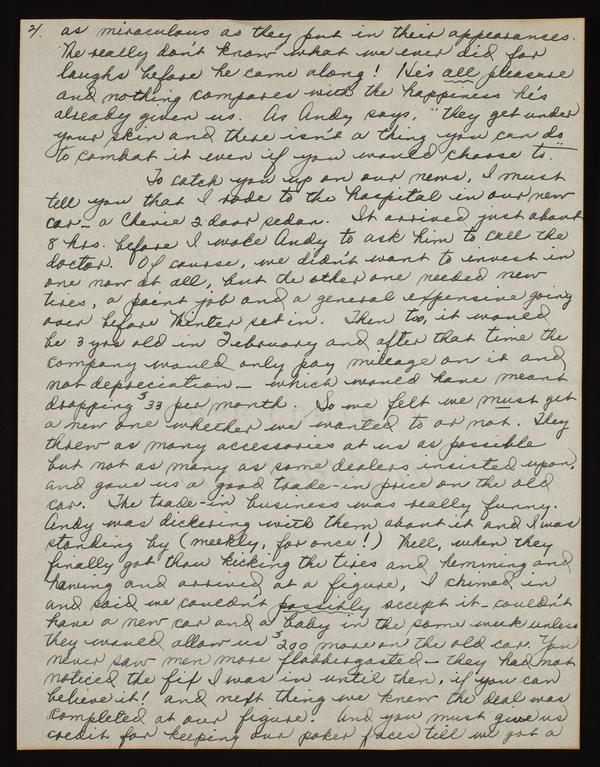 2/. as miraculous as they put in their appearances.
We really don't know what we ever did for
laughs before he came along! He's all pleasure
and nothing compares with the happiness he's
already given us. As Andy says, "they get under
your skin and there isn't a thing you can do
to combat it even if you would choose to."
To catch you up on our news, I must
tell you that I rode to the hospital in our new
car - a Chevie 2 door sedan. It arrived just about
8 hrs. before I woke Andy to ask him to call the
doctor. Of course, we didn't want to invest in
one now at all, but the other one needed new
tires, a paint job and a general expensive going
over before Winter set in. Then too, it would
be 3 yrs old in February and after that time the
company would only pay mileage on it and
not depreciation - which would have meant
dropping $33 per month. So we felt we must get
a new one whether we wanted to or not. They
threw as many accessories at us as possible
but not as many as some dealers insisted upon,
and gave us a good trade-in price on the old
car. The trade-in business was really funny.
Andy was dickering with them about it and I was
standing by (meekly, for once!) Well, when they
finally got thru kicking the tires and hemming and
hawing and arrived at a figure, I chimed in
and said we couldn't possibly accept it - couldn't
have a new car and a baby in the same week unless
they would allow us $200 more on the old car. You
never saw men more flabbergasted - they had not
noticed the fix I was in until then, if you can
believe it! and next thing we knew the deal was
completed at our figure! And you must give us
credit for keeping our poker faces till we got a